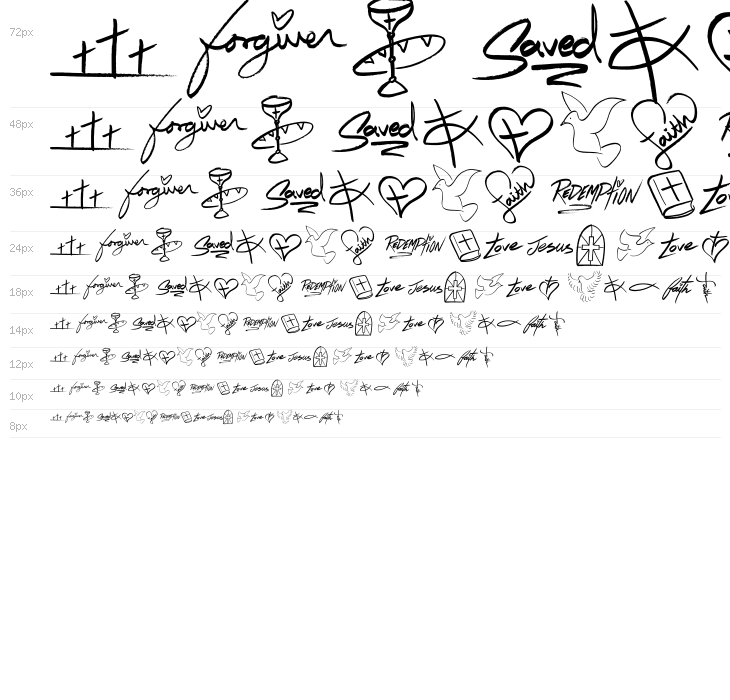 72px forgiven Saved
48px forgiven Saved faith
36px forgiven Saved faith REDEMPTION
24px forgiven Saved faith REDEMPTION Love Jesus Love
18px forgiven Saved faith REDEMPTION Love Jesus Love faith
14px forgiven Saved faith REDEMPTION Love Jesus Love faith
12px forgiven Saved faith REDEMPTION Love Jesus Love faith
10px forgiven Saved faith REDEMPTION Love Jesus Love faith
8px forgiven Saved faith REDEMPTION Love Jesus Love faith